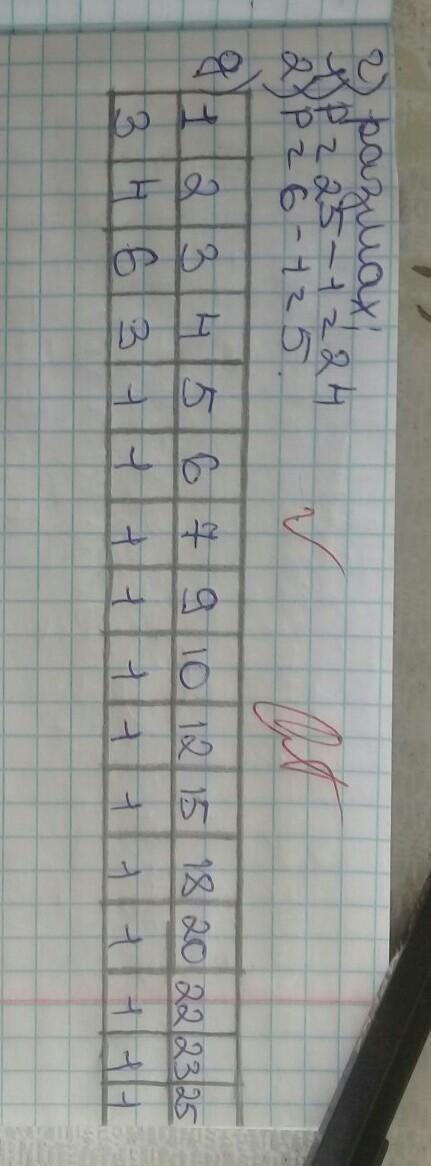 г) размах:
1) р = 25 - 1 = 24
2) р = 6 - 1 = 5.
д)
1 2 3 4 5 6 7 9 10 12 15 18 20 22 23 25
3 4 6 3 1 1 1 1 1 1 1 1 1 1 1 1